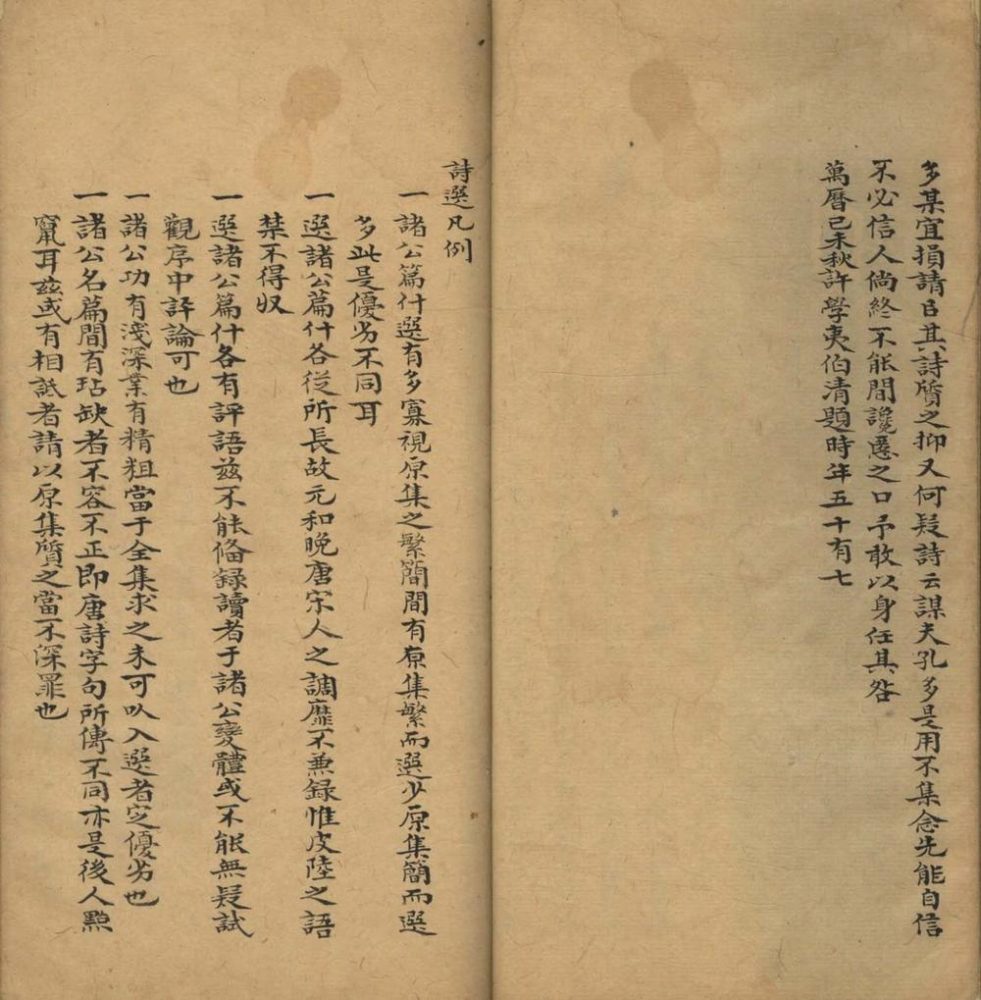 多某宜損請㠯其詩質之抑又何疑詩云謀夫孔多是用不集念先能自信
不必信人倘終不能間讒慝之口予敢以身任其咎
萬曆己未秋許學夷伯清題時年五十有七
詩選凡例
一諸公篇什選有多寡視原集之繁簡間有原集繁而選少原集簡而選
多此是優劣不同耳
一選諸公篇什各從所長故元和晚唐宋人之調靡不兼錄惟皮陸之語
禁不得収
一選諸公篇什各有評語茲不能俻録讀者于諸公變體或不能無疑試
觀序中評論可也
一諸公功有淺深業有精粗當于全集求之未可㕥入選者定優劣也
一諸公名篇間有玷缺者不容不正即唐詩字句所傳不同亦是後人㸃
竄耳茲或有相詆者請以原集質之當不深罪也